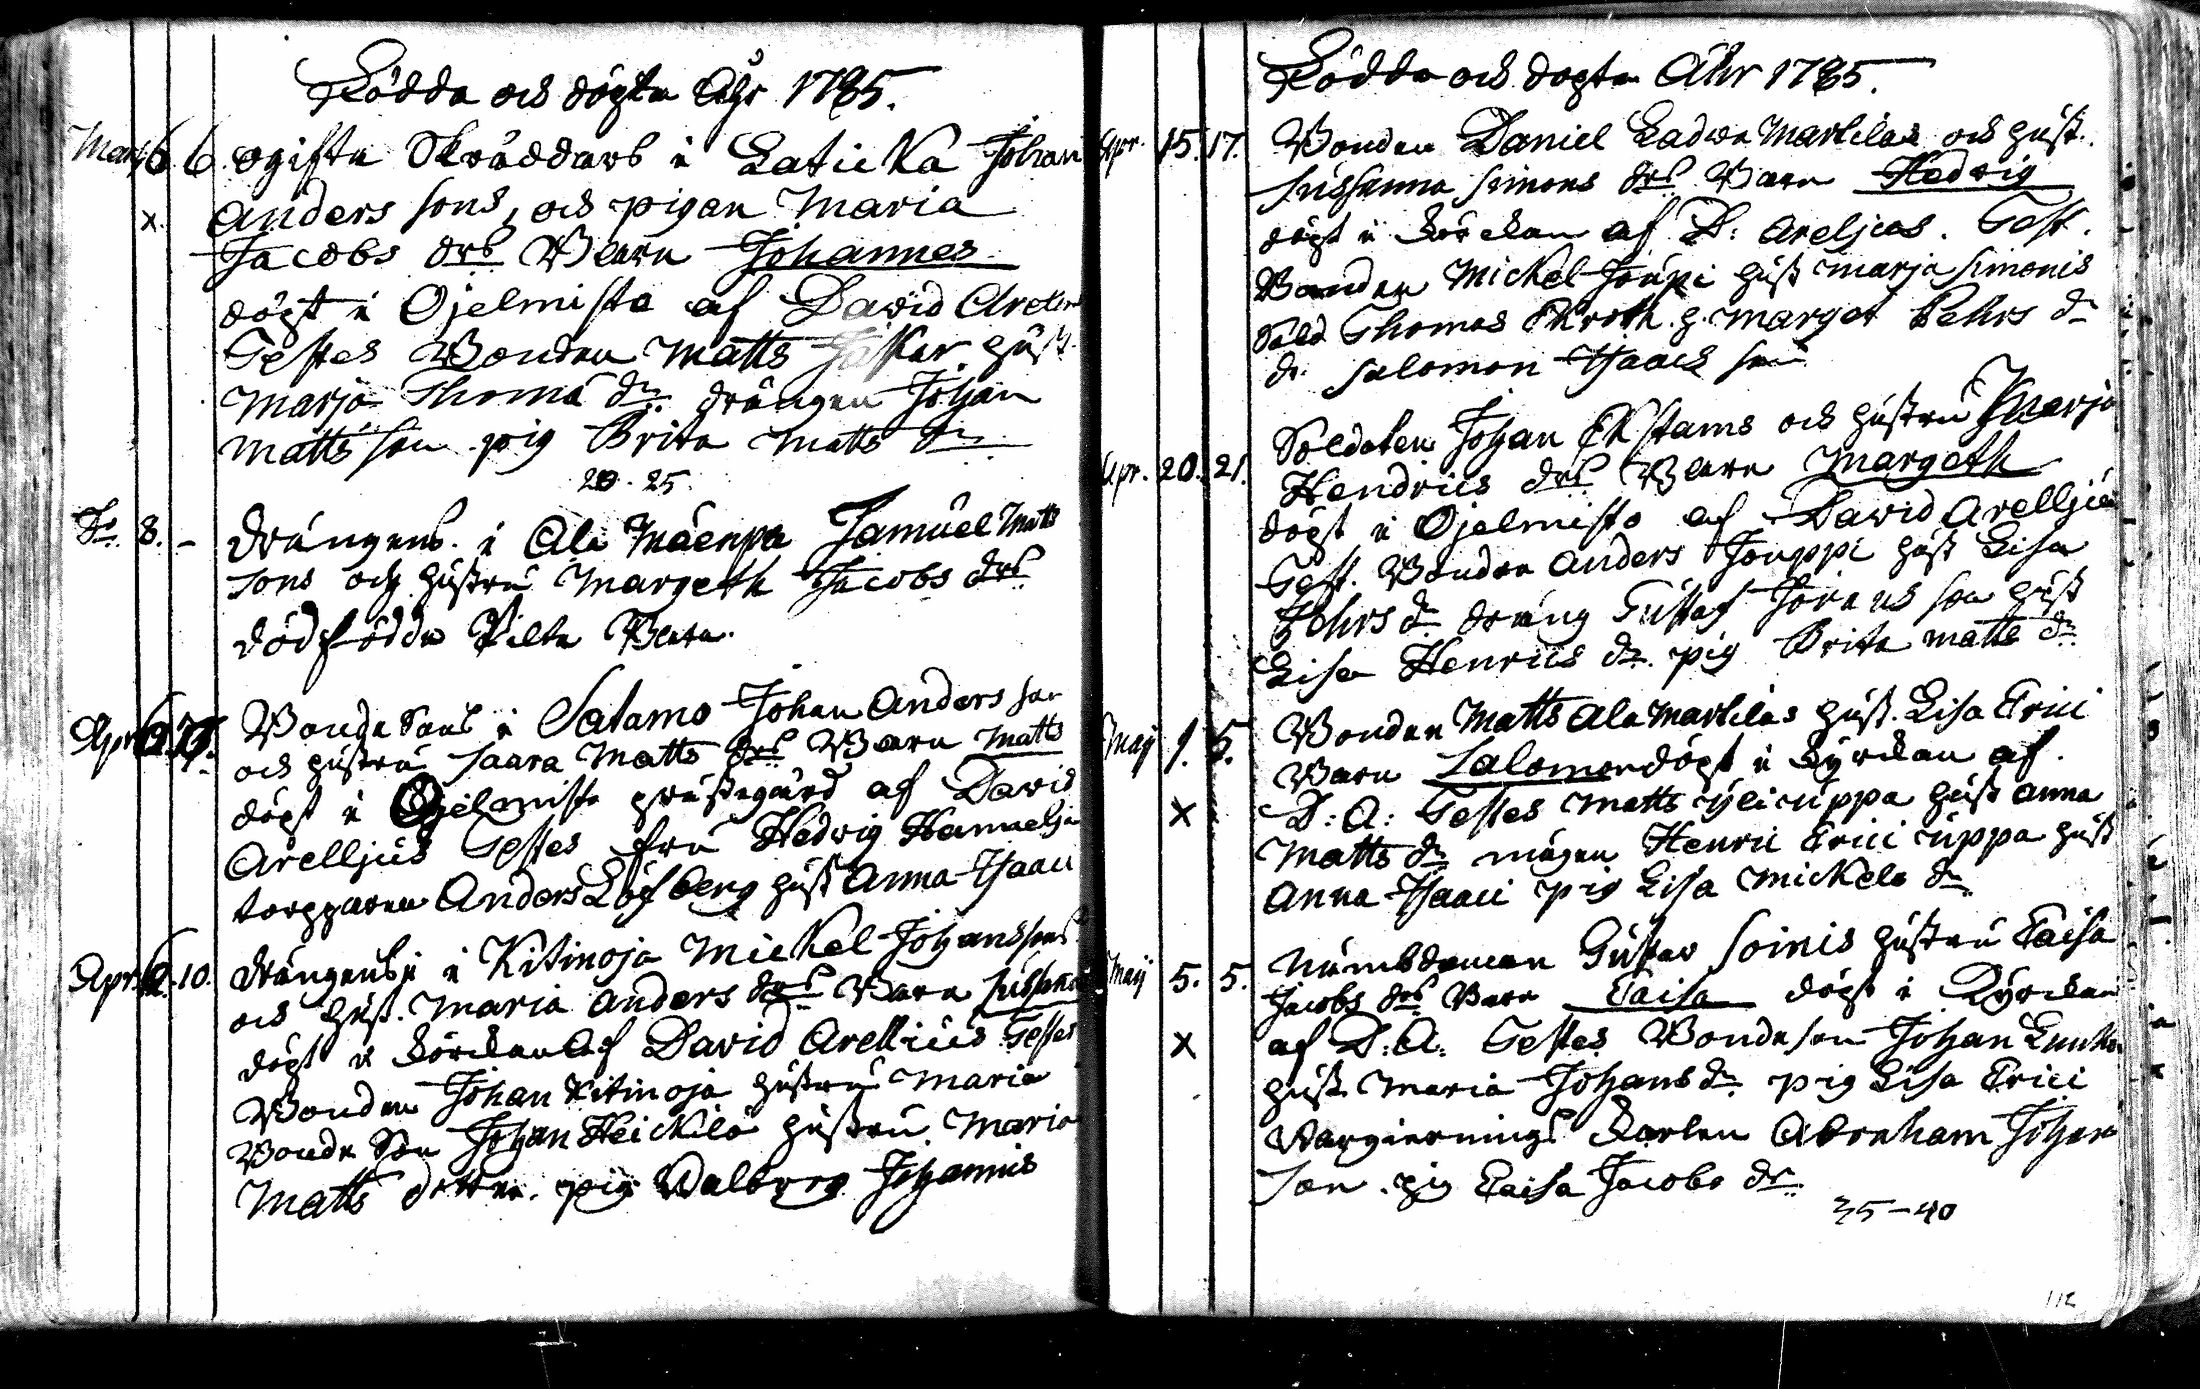 Födda och döpta Åhr 1785.
Marti 6 6 ogifta Skräddars i Laticka Johan
x Anders sons, och pigan Maria
Jacobs drs Barn Johannes
döpt i Ojelmisto af David Arel
Testes Bonden Matts hust
Marja Thoma dr. drängen Johan
Matts son pig Brita Matts dr
25.
Do. 8. - Drängens i Ala Mäenpä Samuel Matts
sons och hustru Margeth Jacobs drs
dödfödda Pilte Barn.
Apr Bonde Sons i Salamo Johan Anders son
och hustru Saara Matts drs Barn Matts
döpt i Ojelmisto prästegård af David
Arelljus Testes fru Hedwig
torpparen Anders Löfberg hust Anna Isaaci
Apr. 10. Drängens i Kitinoja Mickel Johanssons
och hust. Maria Anders drs Barn Sussanna
döpt i Körckan af David Arellius Testes
Bonden Johan Kitinoja hustru Maria
Bonde Son Johan Heickilä hustru Maria
Matts dotter. pig Walborg Johannis
Födda och döpta Åhr 1785.
Apr. 15. 17. Bonden Daniel Ladwa Markilas och hust.
Sussanna Simons drs Barn Hedvig
döpt i Körckan af D: Areljus. Test.
Bonden Mickel Joupi hust Marja Simonis
Sold Thomas h. Marget Pehrs dr
dr. Salomon Isaacs son
Soldaten Johan Ekstams och hustru Marja
Apr. 20. 21. Hendrics drs Barn Margeth
döpt i Ojelmisto af David Arelljus
Test. Bonden Anders Jouppi hust Lisa
Pehrs dr dräng Gustaf Jörans son hust
Lisa Henrics dr. pig Brita Matts dr
Maij 1. 5. Bonden Matts Ala Markilas hust. Lisa Erici
Barn Salomon döpt i Kyrckan af
x D: A: Testes Matts Ylicuppa hust Anna
Matts dr mågen Henric Erici uppa hust
Anna Isaaci pig Lisa Mickels dr
Maij 5. 5. Nämbdeman Gustav Soinis hustru Caisa
Jacobs drs Barn Caisa döpt i Kyrckan
x af D: A: Testes Bondeson Johan
hust. Maria Johans dr. pig Lisa Erici
Wargierings Karlen Abraham Johan
Son. pig Caisa Jacobs dr
35-40
112